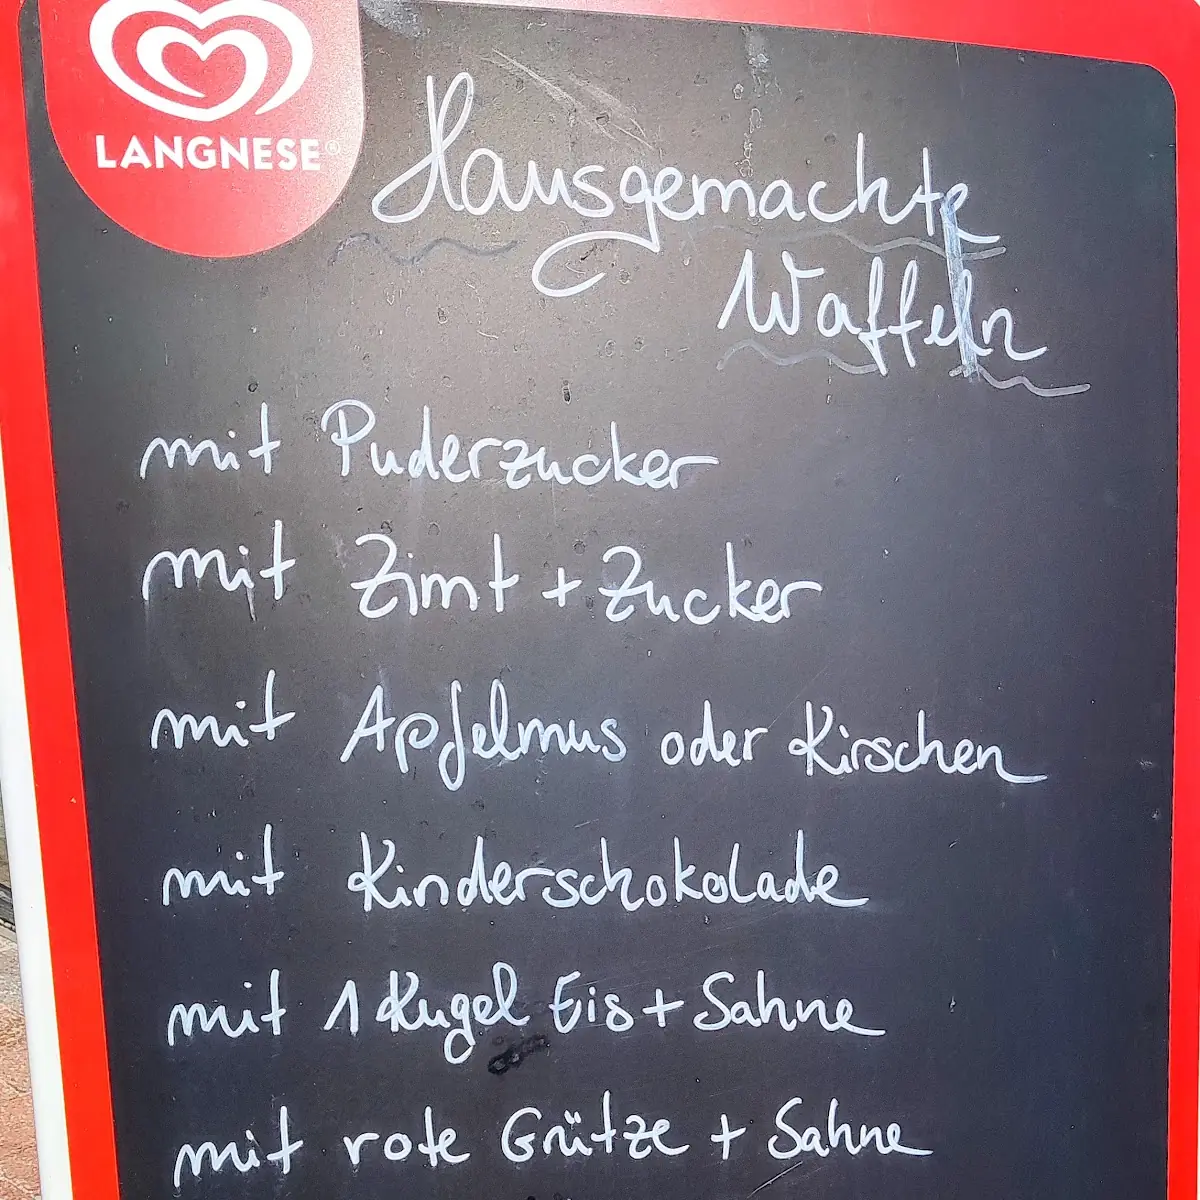 LANGNESE®
Hausgemachte
Waffeln
mit Puderzucker
mit Zimt + Zucker
mit Apfelmus oder Kirschen
mit Kinderschokolade
mit 1 Kugel Eis + Sahne
mit rote Grütze + Sahne